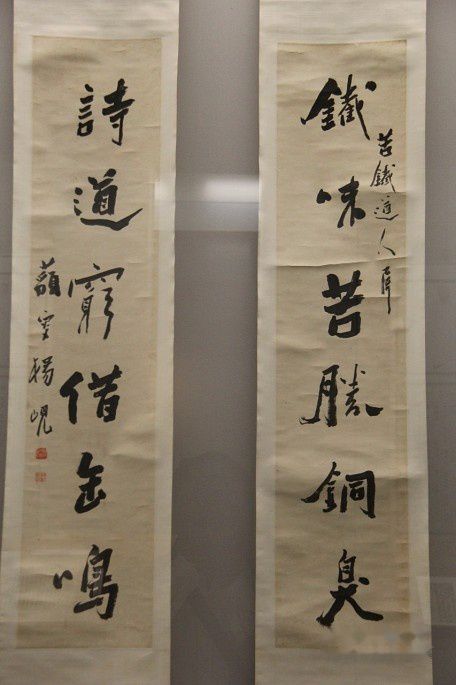 鐵味苦勝銅臭
苦鐵道人屬
詩道窮借缶鳴
藐翁楊峴